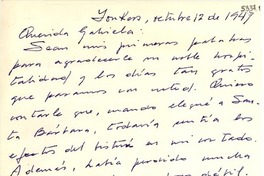 5337 1
Yonkers, octubre 12 de 1947
Querida Gabriela:
Sean mis primeras palabras
para agradecerle su noble hospi-
talidad y los días tan gratos
que pasamos con usted. Quiero
contarle que, cuando llegué a San-
ta Bárbara, todavía sentía los
efectos del bisturí en mi costado.
Además, había perdido mucha